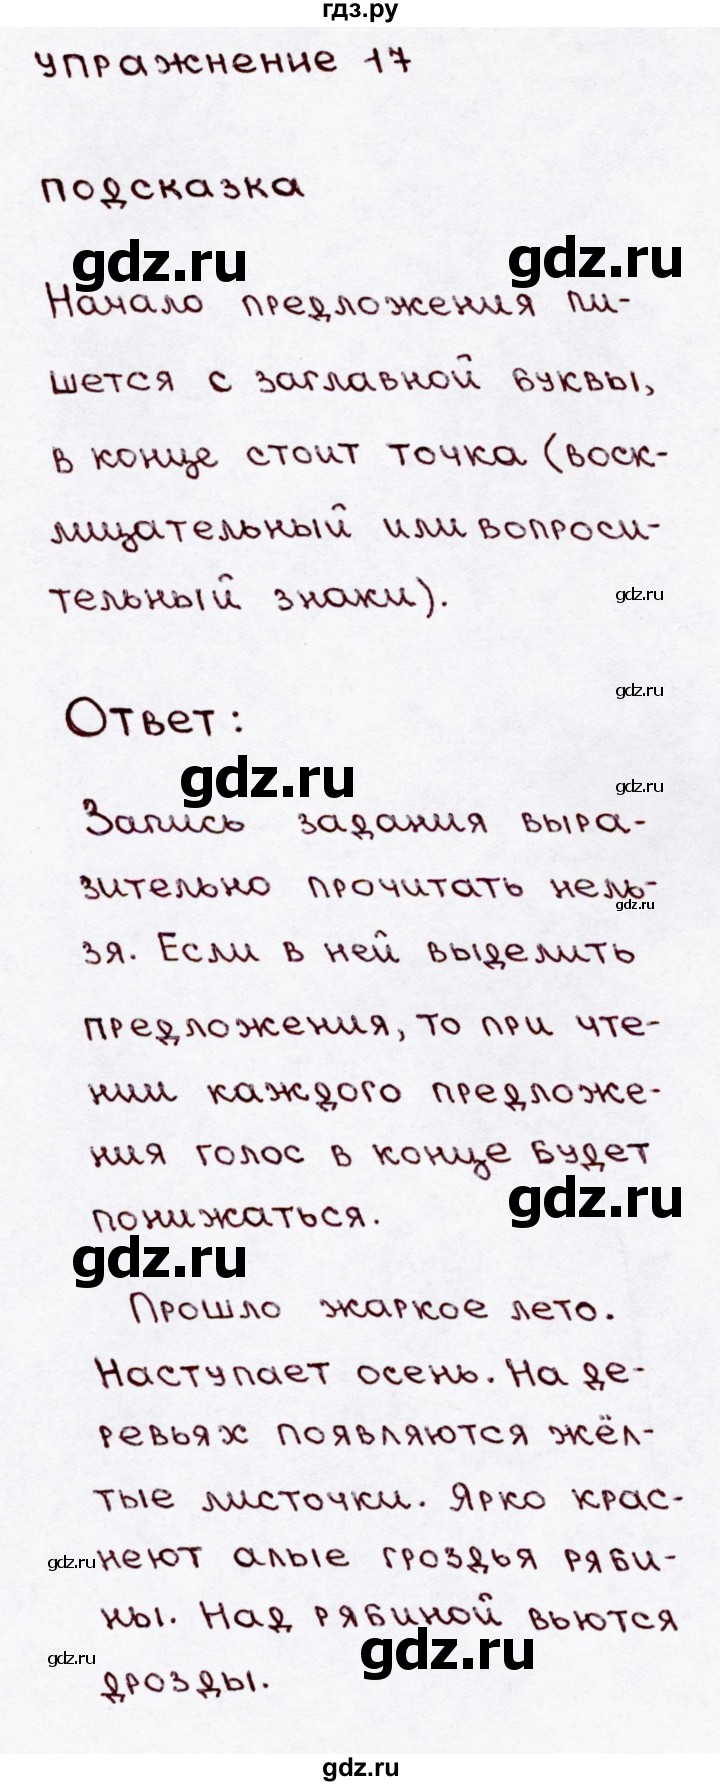 гдз.ру
упражнение 17
подсказка
gdz.ru
gdz.ru
Начало предложения пи-
шется с заглавной буквы,
в конце стоит точка (воск-
лицательный или вопроси-
тельный знаки).
gdz.ru
gdz.ru
Ответ:
gdz.ru
gdz.ru
Запись задания выра-
зительно прочитать нель-
gdz.ru
зя. Если в ней выделить
предложения, то при чте-
нии каждого предложе-
ния голос в конце будет
gdz.ru
понижаться.
gdz.ru
Прошло жаркое лето.
Наступает осень. На де-
ревьях появляются жёл-
тые листочки. Ярко крас-
gdz.ru
неют алые гроздья ряби-
ны. Над рябиной вьются
gdz.ru
gdz.ru
дрозды.
gdz.ru